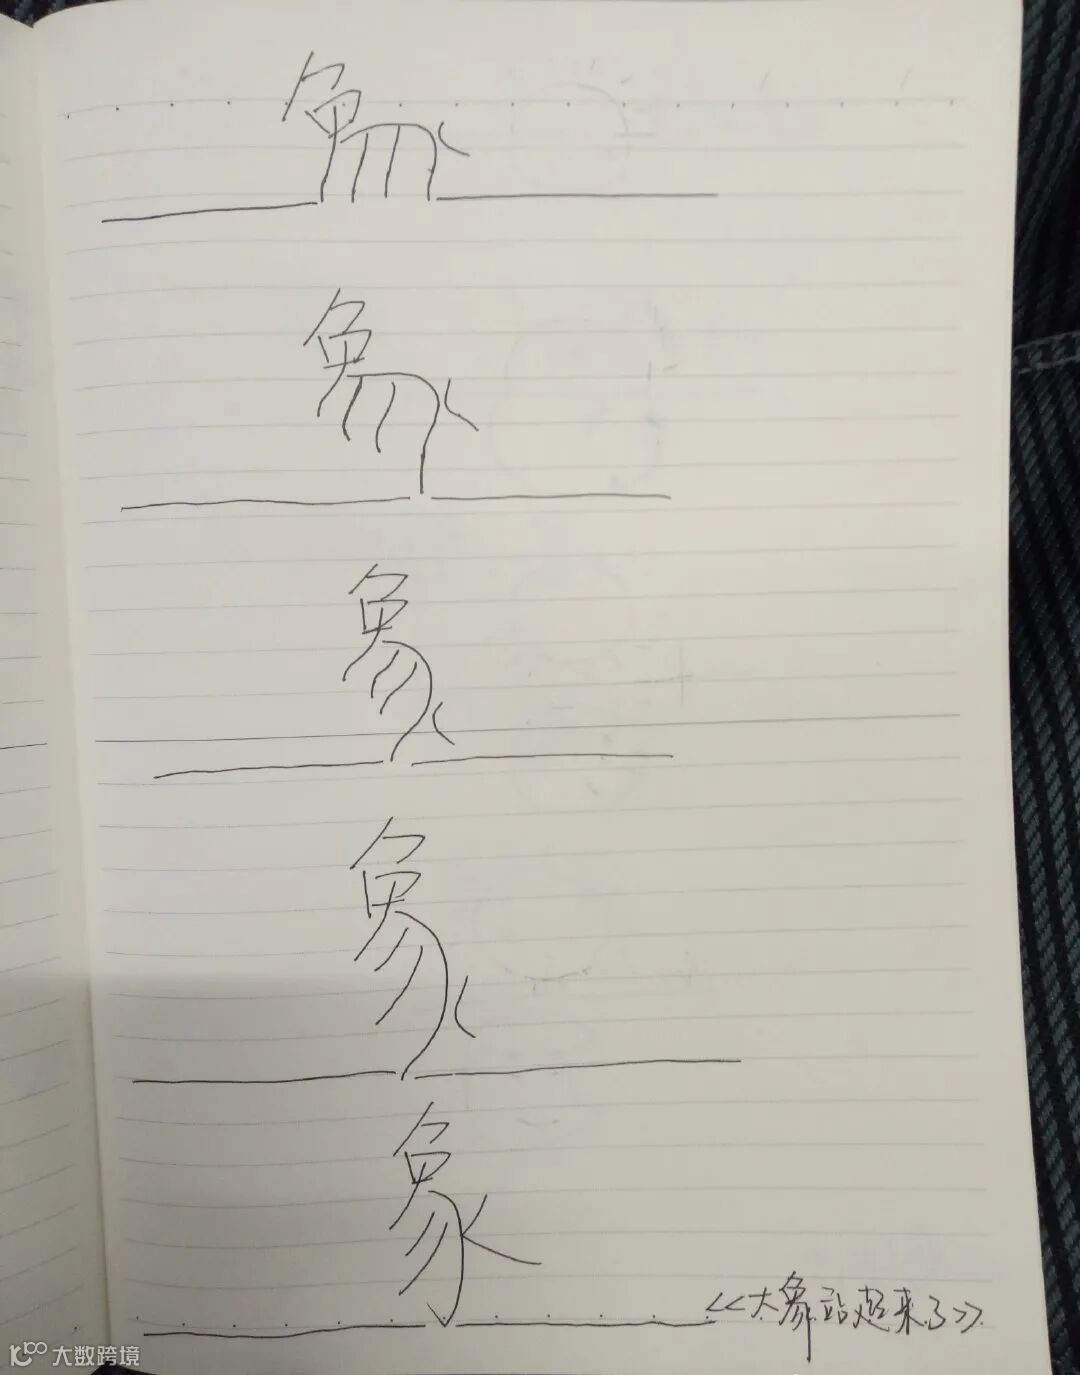 象
象
象
象
象
《大象站起来了》
大数跨境